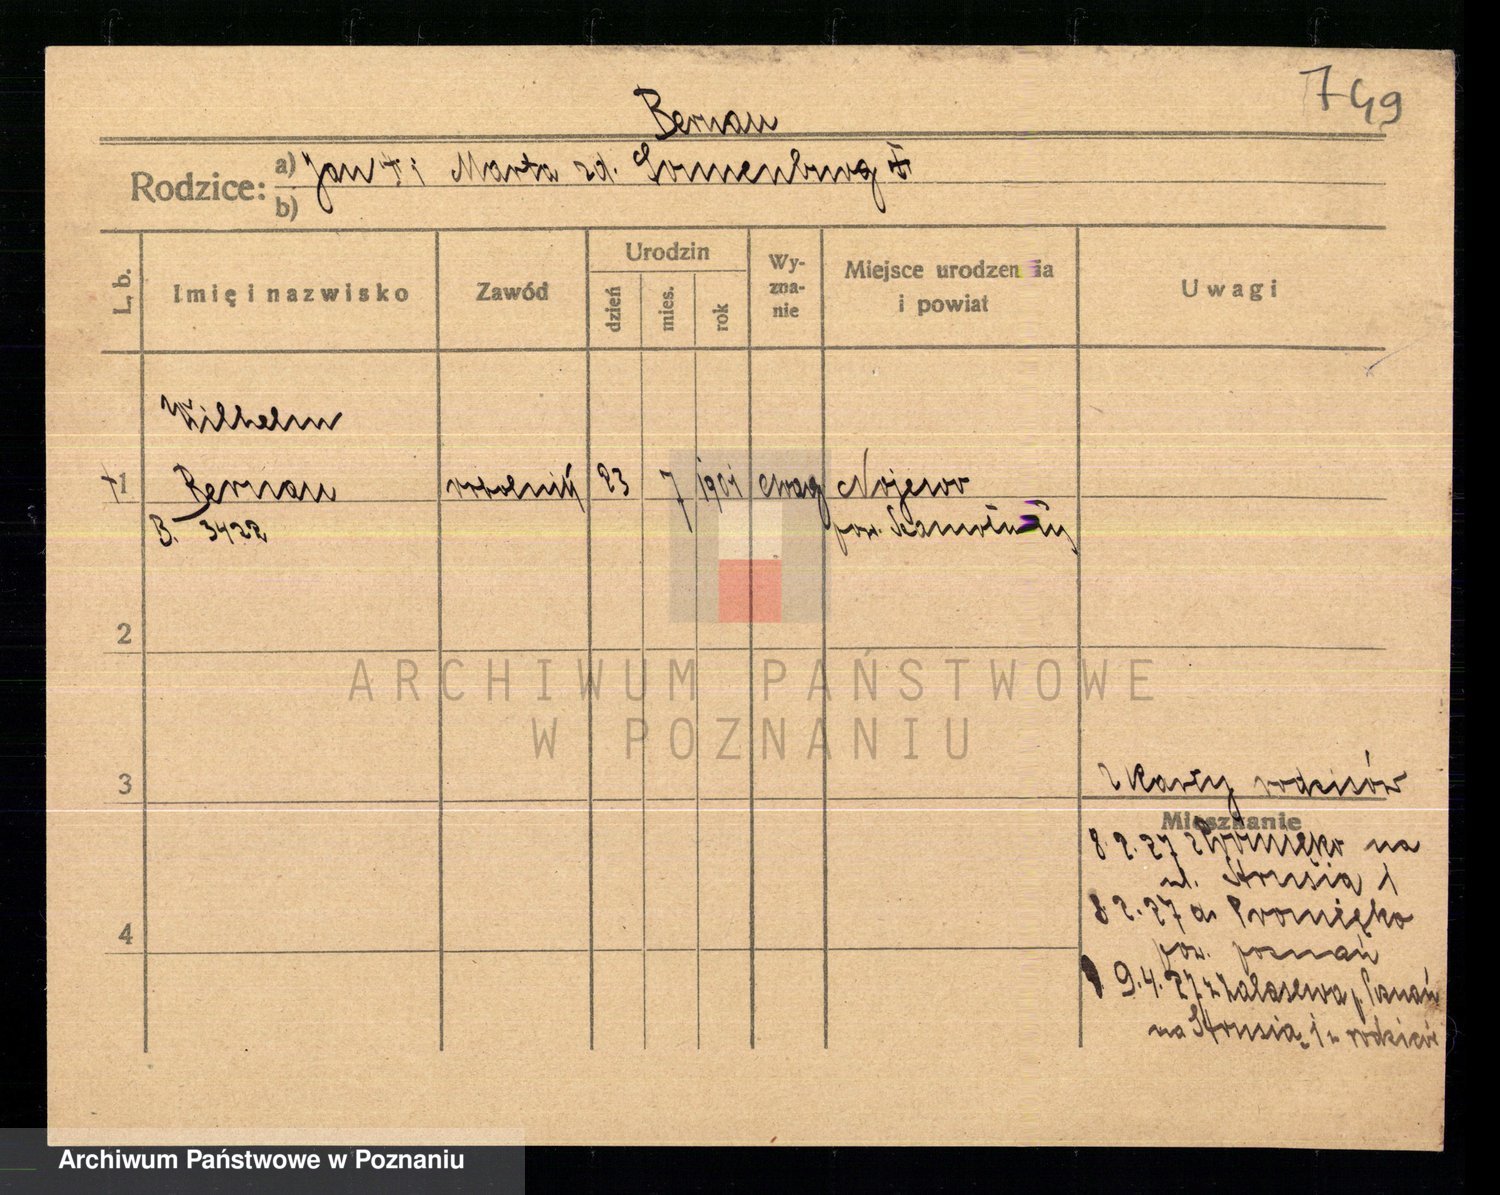 749
Bernau
Rodzice: a) Jan † i Marta zd. Sonnenburg †
b)
L. b.
Imię i nazwisko
Zawód
Urodzin
dzień
mies.
rok
Wy-
zna-
nie
Miejsce urodzenia
i powiat
Uwagi
Wilhelm
†1 Bernau robotnik 23 7 1901 ewag Nojewo
B. 3422 pow. Szamotuły
2
ARCHIWUM PAŃSTWOWE
W POZNANIU
3
z karty rodziców
Mieszkanie
8.2.27 z na
ul. Strusia 1
8.2.27 do
4
pow. poznań
9.4.27 z Zalasewa p. Poznań
na Strusia 1 u rodziców
Archiwum Państwowe w Poznaniu